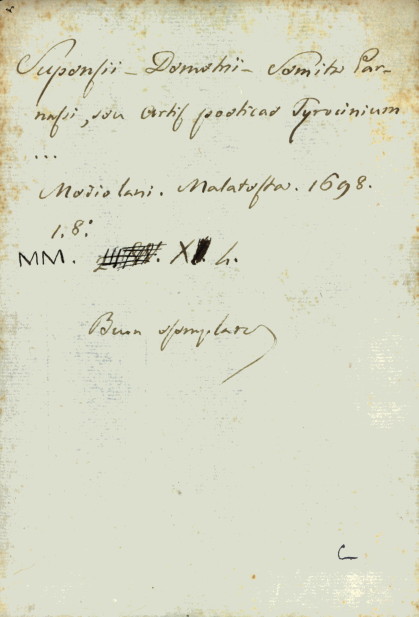 Suponsii - Domotrii - Somita Par-
nassi, seu Artis poeticae Tyrocinium
...
Mediolani. Malatesta. 1698.
1. 8:
MM. X . 4.
Buon esemplare
C